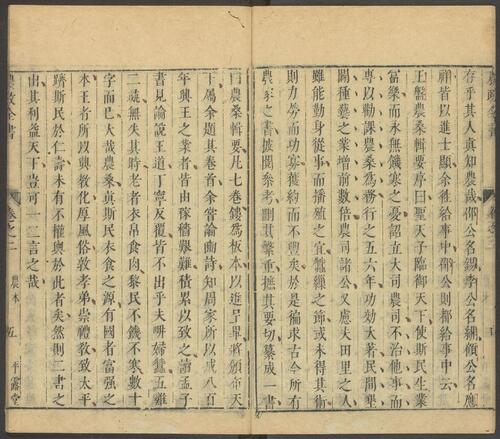 存乎其人眞知農哉
祥皆以進士顯余給事中公則都給事中云
王磐農桑輯要序曰聖天子臨御天下使斯民生業
富樂而永無饑寒之憂詔立大司農司不治他事而
專以勸課農桑爲務行之五六年功効大著民間墾
闢種藝之業增前數倍農司諸公又慮夫田里之人
雖能勤身從事而播殖之宜蠶繰之節或未得其術
則力勞而功寡獲約而不豐矣於是徧求古今所有
農家之書披閱參考刪其繁重摭其要切纂成一書
曰農桑輯要凡七卷鏤爲板本以進呈畢將頒布天
下屬余題其卷首余嘗論豳詩知周家所以成八百
年興王之業者皆由稼穡艱難積累以致之讀孟子
書見論說王道丁寧反覆皆不出乎夫耕婦蠶五雞
二彘無失其時老者衣帛食肉黎民不饑不寒數十
字而已大哉農桑眞斯民衣食之源有國者富强之
本王者所以興敎化厚風俗敦孝弟崇禮敎致太平
躋斯民於仁壽未有不權輿於此者矣然則二書之
出其利益天下豈可一二言之哉
農政全書
農本
五
平露堂